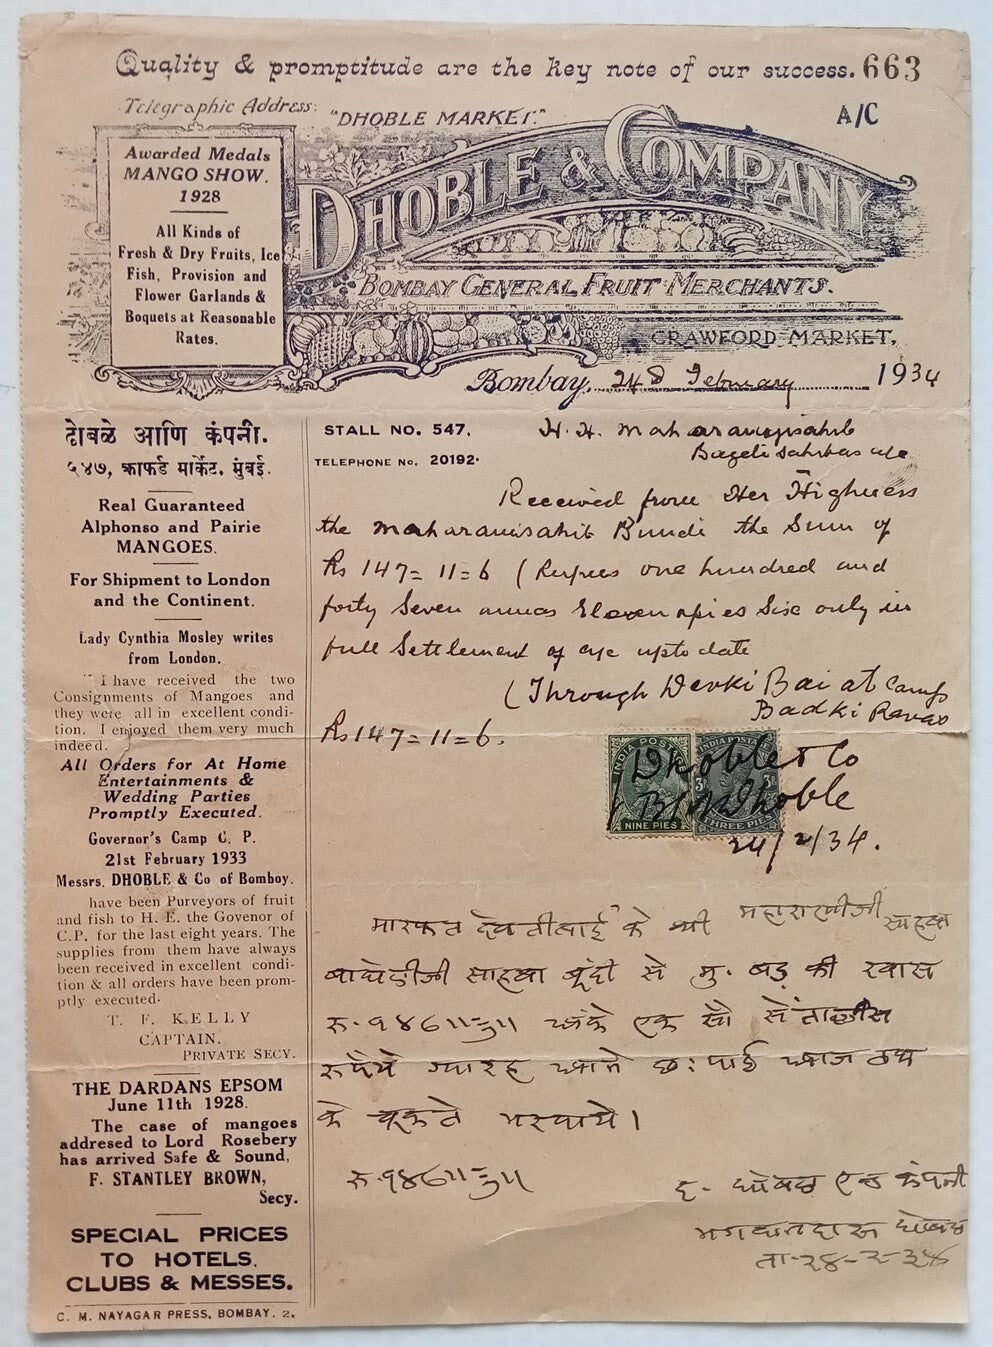 Quality & promptitude are the key note of our success. 663
Telegraphic Address: "DHOBLE MARKET."
A/C
DHOBLE & COMPANY
BOMBAY GENERAL FRUIT MERCHANTS.
CRAWFORD MARKET,
Bombay, 24th February 1934
Awarded Medals
MANGO SHOW.
1928
All Kinds of
Fresh & Dry Fruits, Ice
Fish, Provision and
Flower Garlands &
Boquets at Reasonable
Rates.
ढोबळे आणि कंपनी.
५४७, क्राफर्ड मार्केट. मुंबई.
Real Guaranteed
Alphonso and Pairie
MANGOES.
For Shipment to London
and the Continent.
Lady Cynthia Mosley writes
from London.
"I have received the two
Consignments of Mangoes and
they were all in excellent condi-
tion. I enjoyed them very much
indeed.
All Orders for At Home
Entertainments &
Wedding Parties
Promptly Executed.
Governor's Camp C. P.
21st February 1933
Messrs. DHOBLE & Co of Bomboy.
have been Purveyors of fruit
and fish to H. E. the Govenor of
C.P. for the last eight years. The
supplies from them have always
been received in excellent condi-
tion & all orders have been prom-
ptly executed.
T. F. KELLY
CAPTAIN.
PRIVATE SECY.
THE DARDANS EPSOM
June 11th 1928.
The case of mangoes
addresed to Lord Rosebery
has arrived Safe & Sound,
F. STANTLEY BROWN,
Secy.
SPECIAL PRICES
TO HOTELS.
CLUBS & MESSES.
C. M. NAYAGAR PRESS, BOMBAY. 2.
STALL NO. 547,
TELEPHONE No. 20192.
H. H. Maharanijisahib
Bageli Sahibas a/c
Received from Her Highness
the Maharanisahib Bundi the Sum of
Rs 147=11=6 (Rupees one hundred and
forty Seven annas Eleven pies Six only in
full Settlement of a/c upto date
(Through Devki Bai at Camp
Badki Ravas
Rs 147=11=6.
INDIA POSTAGE
NINE PIES
INDIA POSTAGE
3p
THREE PIES
Dhoble & Co
Dhoble
24/2/34.
मारफत देवकीबाई के श्री महाराणीजी साहबा
बाघेलीजी साहबा बूंदी से मु. बड़ की रवास
रु. १४७॥ अंके एक सौ सेंतालीस
रुपये ग्यारह आने छः पाई आज तक
के चूकते भरपाये।
रु. १४७॥
द. धोबळे एन्ड कंपनी
भगवानदास धोबळे
ता. २४-२-३४